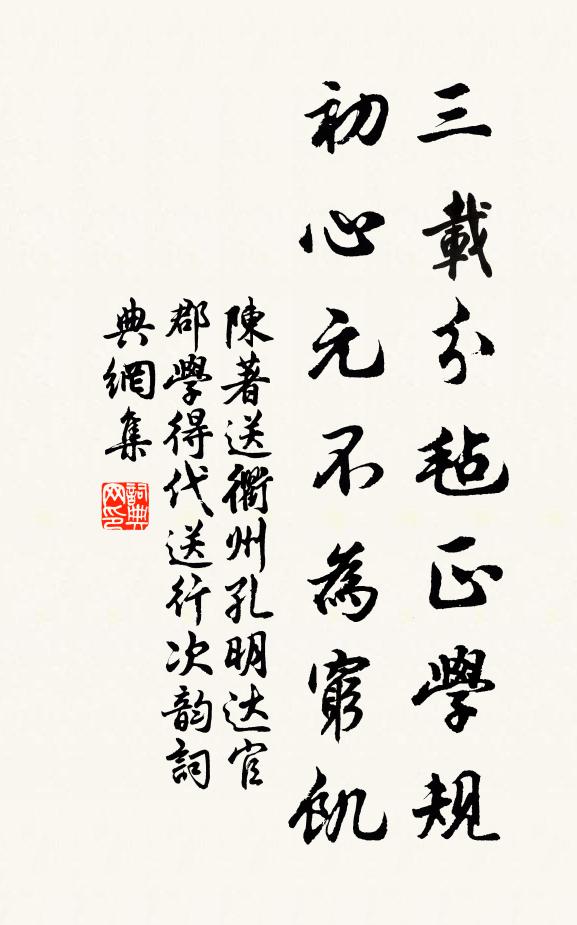 三載分毡正學規
初心元不為窮飢
陳著送衢州孔明达官
郡學得代送行次韵詞
典網集
詞典网印